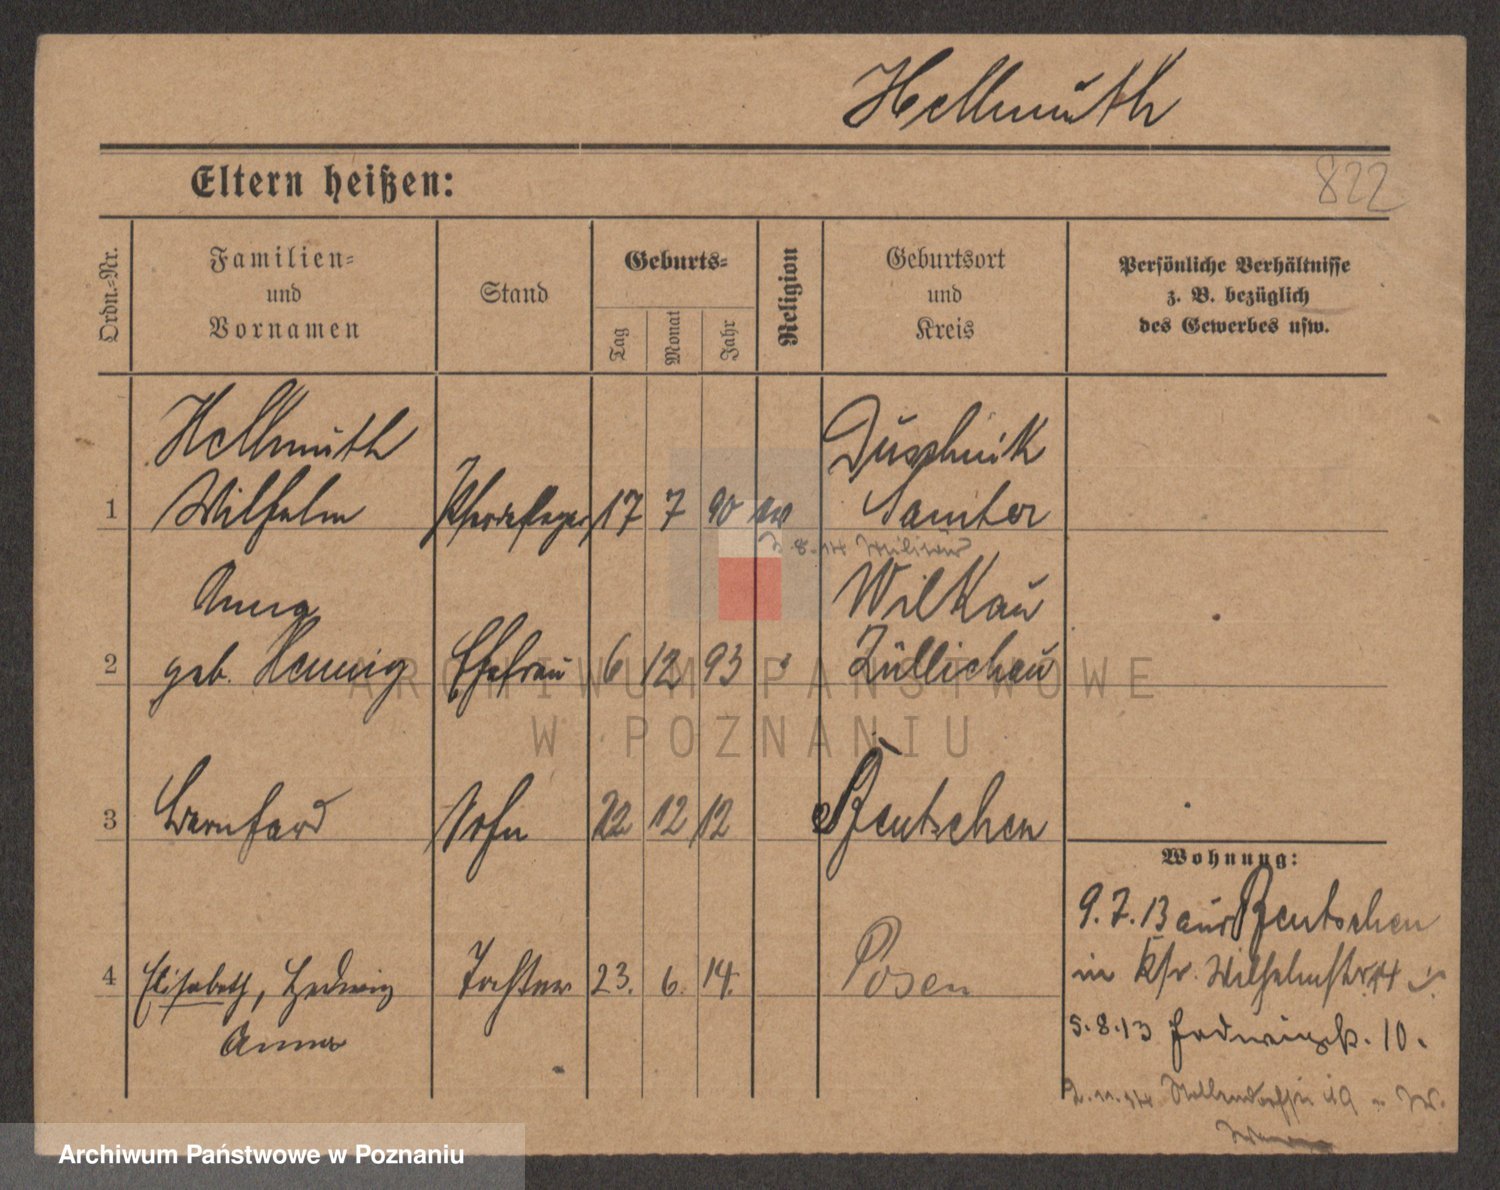 Hellmuth
822
Eltern heißen:
Ordn.-Nr.
Familien-
und
Vornamen
Stand
Geburts-
Tag
Monat
Jahr
Religion
Geburtsort
und
Kreis
Persönliche Verhältnisse
z. B. bezüglich
des Gewerbes usw.
Hellmuth Duschnik
1 Wilhelm Pferdepfleger 17 7 90 ev Samter
2.8.14 Militär
Anna Wilkau
2 geb. Hennig Ehefrau 6 12 93 Züllichau
3 Bernhard Sohn 22 12 12 Bentschen
Wohnung:
9.7.13 aus Bentschen
4 Elisabeth, Hedwig Tochter 23. 6. 14. Posen
in Wilhelmstr.
Anna
5.8.13 10.
2.11.14
ARCHIWUM PAŃSTWOWE
W POZNANIU
Archiwum Państwowe w Poznaniu